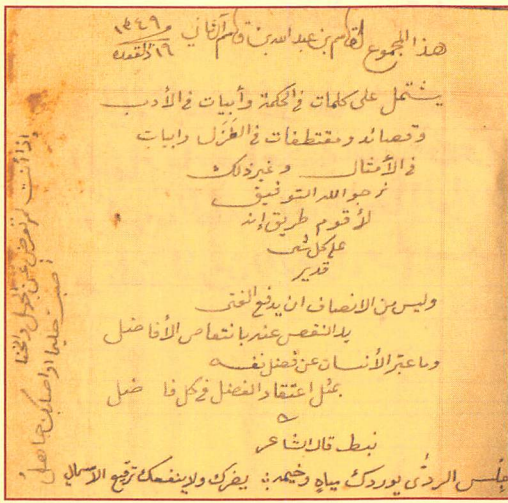 هذا المجموع لقاسم بن عبد الله بن قاسم آل ثاني
١٣٤٩
١٦ ذو القعدة
يشتمل على كلمات في الحكمة وأبيات في الأدب
وقصائد ومقتطفات في الغزل وابيات
في الأمثال وغير ذلك
نرجو الله التوفيق
لأقوم طريق إنه
على كل شي
قدير
وليس من الانصاف ان يدفع الفتى
يد النقص عنه بانتقاص الأفاضل
وما عبّر الأنسان عن فضل نفسه
بمثل اعتقاد الفضل في كل فاضل
نبط قال الشاعر
جلس الردى يوردك مياه وخيمه يضرك ولا ينفعك ترقيع الاسمال
إذا أنت لم تعرض عن الجهل والخنا
أصبت حليما او اصابك جاهل